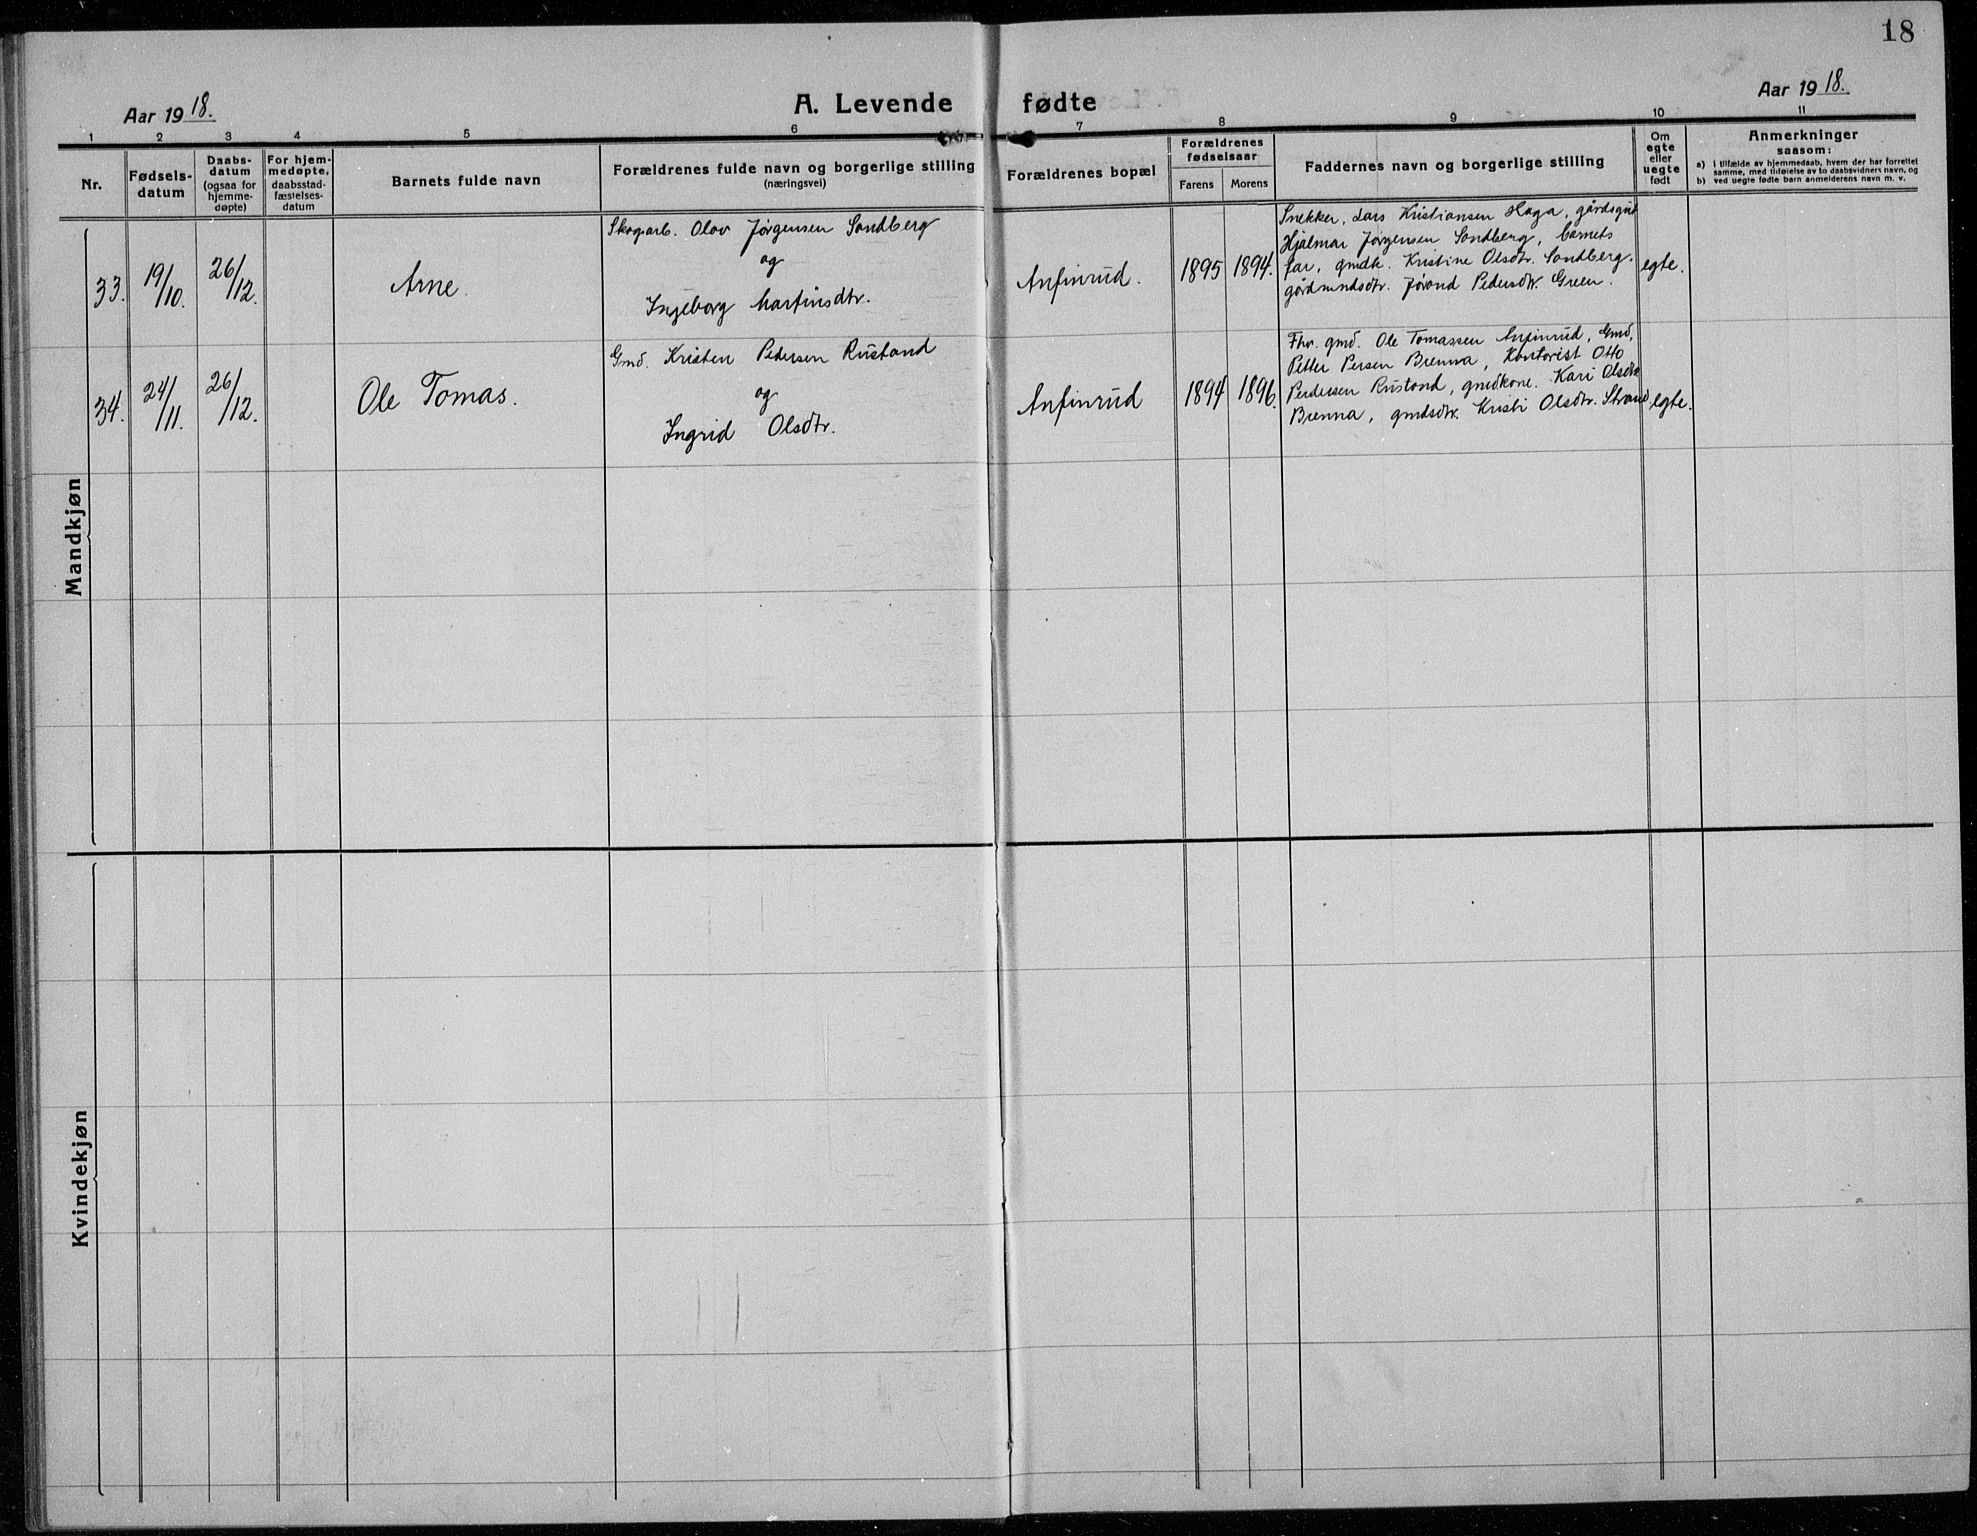 18
Aar 1918.
A. Levende fødte
Aar 1918.
1 2 3 4 5 6 7 8 9 10 11
Nr.
Fødsels-
datum
Daabs-
datum
(ogsaa for
hjemme-
døpte)
For hjem-
medøpte,
daabsstad-
fæstelses-
datum
Barnets fulde navn
Forældrenes fulde navn og borgerlige stilling
(næringsvei)
Forældrenes bopæl
Forældrenes
fødselsaar
Farens Morens
Faddernes navn og borgerlige stilling
Om
egte
eller
uegte
født
Anmerkninger
saasom:
a) I tilfælde av hjemmedaab, hvem der har forrettet
samme, med tilføielse av to daabsvidners navn, og
b) ved uegte fødte barn anmelderens navn m. v.
Mandkjøn
33. 19/10. 26/12. Arne.
Skogarb. Olov Jørgensen Sandberg
og
Ingeborg Martinsdtr.
Anfinrud. 1895 1894.
Snekker, Lars Kristiansen Haga, gårdsgut
Hjalmar Jørgensen Sandberg, barnets
far, gmdk. Kristine Olsdtr. Sandberg.
gårdmndsdtr. Jørand Pedersdtr. Green.
egte.
34. 24/11. 26/12. Ole Tomas.
Gmd. Kristen Pedersen Rustand
og
Ingrid Olsdtr.
Anfinrud 1894 1896.
Fhv. gmd. Ole Tomassen Anfinrud, Gmd,
Petter Persen Brenna, Kontorist Otto
Pedersen Rustand, gmdkone. Kari Olsdtr.
Brenna, gmdsdtr. Kristi Olsdtr. Strand
egte.
Kvindekjøn